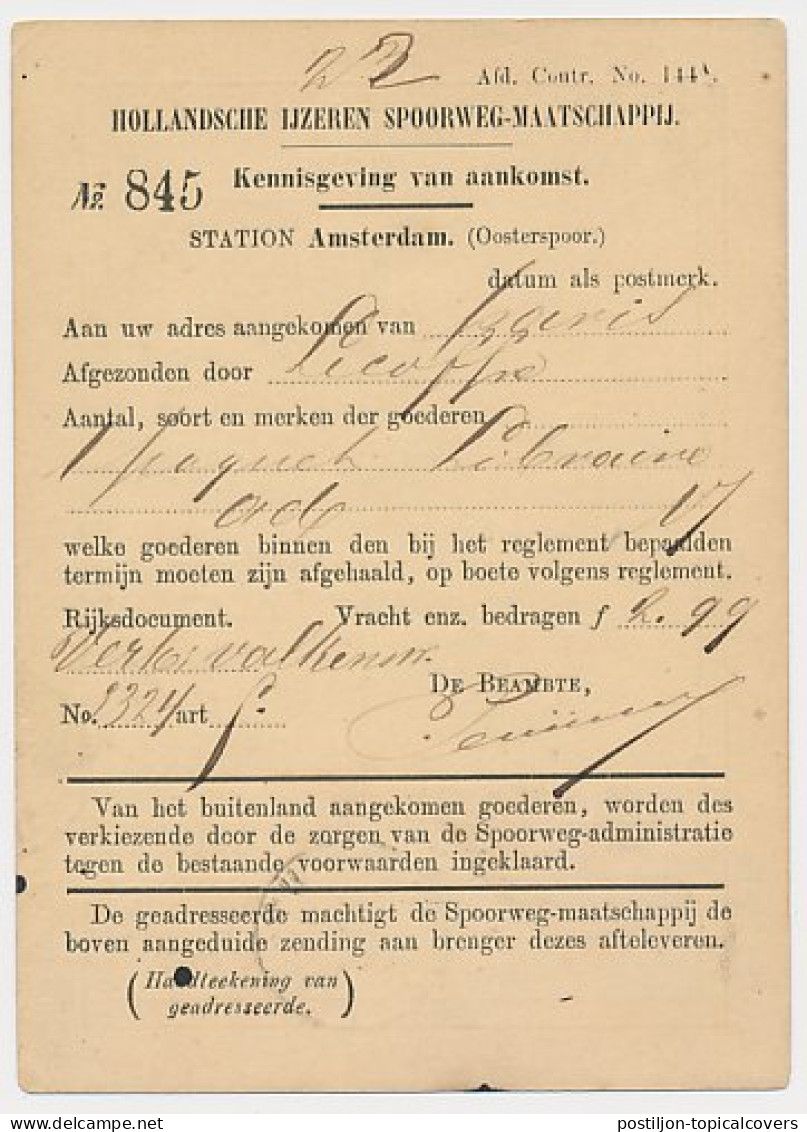 22 Afd. Contr. No. 144A.
HOLLANDSCHE IJZEREN SPOORWEG-MAATSCHAPPIJ.
No. 845 Kennisgeving van aankomst.
STATION Amsterdam. (Oosterspoor.)
datum als postmerk.
Aan uw adres aangekomen van
Afgezonden door
Aantal, soort en merken der goederen
1 paquet Librairie
welke goederen binnen den bij het reglement bepaalden
termijn moeten zijn afgehaald, op boete volgens reglement.
Rijksdocument. Vracht enz. bedragen f 2.99
DE BEAMBTE,
No. art
Van het buitenland aangekomen goederen, worden des
verkiezende door de zorgen van de Spoorweg-administratie
tegen de bestaande voorwaarden ingeklaard.
De geadresseerde machtigt de Spoorweg-maatschappij de
boven aangeduide zending aan brenger dezes afteleveren.
(Handteekening van
geadresseerde.)
www.delcampe.net postiljon-topicalcovers